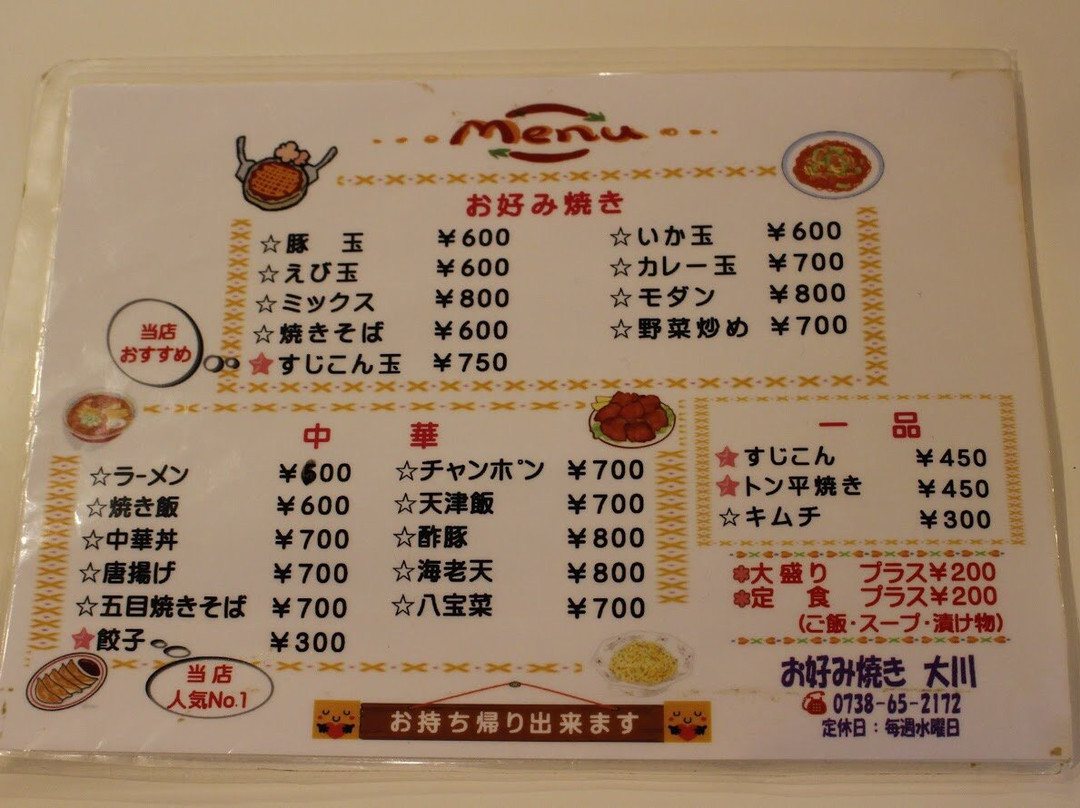 Menu
お好み焼き
☆豚 玉 ¥600
☆えび玉 ¥600
☆ミックス ¥800
☆焼きそば ¥600
★すじこん玉 ¥750
☆いか玉 ¥600
☆カレー玉 ¥700
☆モダン ¥800
☆野菜炒め ¥700
当店
おすすめ
中 華
☆ラーメン ¥600
☆焼き飯 ¥600
☆中華丼 ¥700
☆唐揚げ ¥700
☆五目焼きそば ¥700
★餃子 ¥300
☆チャンポン ¥700
☆天津飯 ¥700
☆酢豚 ¥800
☆海老天 ¥800
☆八宝菜 ¥700
当店
人気No.1
一 品
★すじこん ¥450
★トン平焼き ¥450
☆キムチ ¥300
大盛り プラス¥200
定 食 プラス¥200
(ご飯・スープ・漬け物)
お好み焼き 大川
☎0738-65-2172
定休日：毎週水曜日
お持ち帰り出来ます